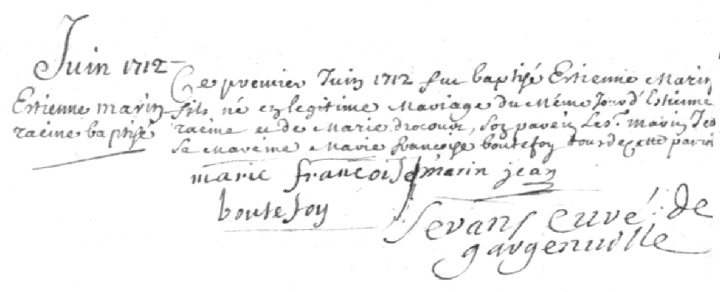 Juin 1712
Ce premier Juin 1712 fut baptisé Estienne Marin
Estienne marin
racine baptisé
fils né en legitime Mariage du Même Jour d'Estienne
racine et de Marie drocourt, son parein le sr. marin Jea
Sa Mareine Marie francoise boutefoy tous de cette parroi
marie francoise
boutefoy
marin jean
Sevans curé de
gargenuille